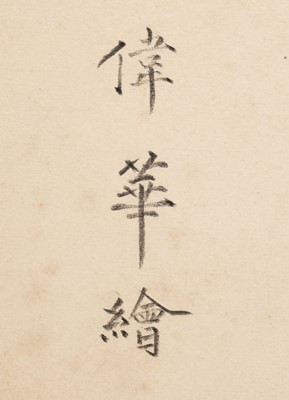 偉華繪